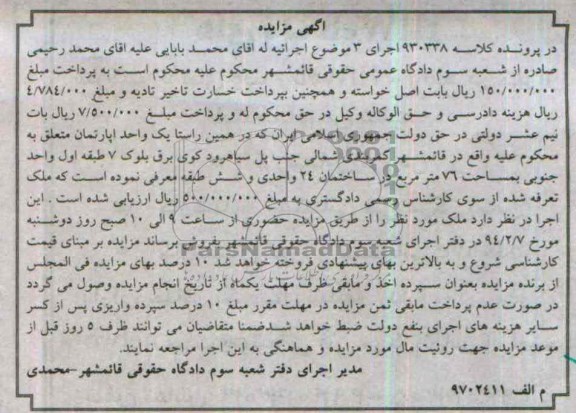 آگهی مزایده
در پرونده کلاسه ۹۳۰۳۳۸ اجرای ۳ موضوع اجرائیه له آقای محمد بابایی علیه آقای محمد رحیمی
صادره از شعبه سوم دادگاه عمومی حقوقی قائمشهر محکوم علیه محکوم است به پرداخت مبلغ
۱۵۰/۰۰۰/۰۰۰ ریال بابت اصل خواسته و همچنین بپرداخت خسارت تاخیر تادیه و مبلغ ۴/۷۸۴/۰۰۰
ریال هزینه دادرسی و حق الوکاله وکیل در حق محکوم له و پرداخت مبلغ ۷/۵۰۰/۰۰۰ ریال بات
نیم عشر دولتی در حق دولت جمهوری اسلامی ایران که در همین راستا یک واحد اپارتمان متعلق به
محکوم علیه واقع در قائمشهر کمربندی شمالی جنب پل سیاهرود کوی برق بلوک ۷ طبقه اول واحد
جنوبی بمساحت ۷۶ متر مربع در ساختمان ۲۴ واحدی و شش طبقه معرفی نموده است که ملک
تعرفه شده از سوی کارشناس رسمی دادگستری به مبلغ ۵۰۰/۰۰۰/۰۰۰ ریال ارزیابی شده است . این
اجرا در نظر دارد ملک مورد نظر را از طریق مزایده حضوری از ساعت ۹ الی ۱۰ صبح روز دوشنبه
مورخ ۹۴/۲/۷ در دفتر اجرای شعبه سوم دادگاه حقوقی قائمشهر بفروش برساند مزایده بر مبنای قیمت
کارشناسی شروع و به بالاترین بهای پیشنهادی فروخته خواهد شد ۱۰ درصد بهای مزایده فی المجلس
از برنده مزایده بعنوان سپرده اخذ و مابقی ظرف مهلت یکماه از تاریخ انجام مزایده وصول می گردد
در صورت عدم پرداخت مابقی ثمن مزایده در مهلت مقرر مبلغ ۱۰ درصد سپرده واریزی پس از کسر
سایر هزینه های اجرای بنفع دولت ضبط خواهد شدضمنا متقاضیان می توانند ظرف ۵ روز قبل از
موعد مزایده جهت روئیت مال مورد مزایده و هماهنگی به این اجرا مراجعه نمایند.
مدیر اجرای دفتر شعبه سوم دادگاه حقوقی قائمشهر-محمدی
م الف ۹۷۰۲۴۱۱
ParsNamadData